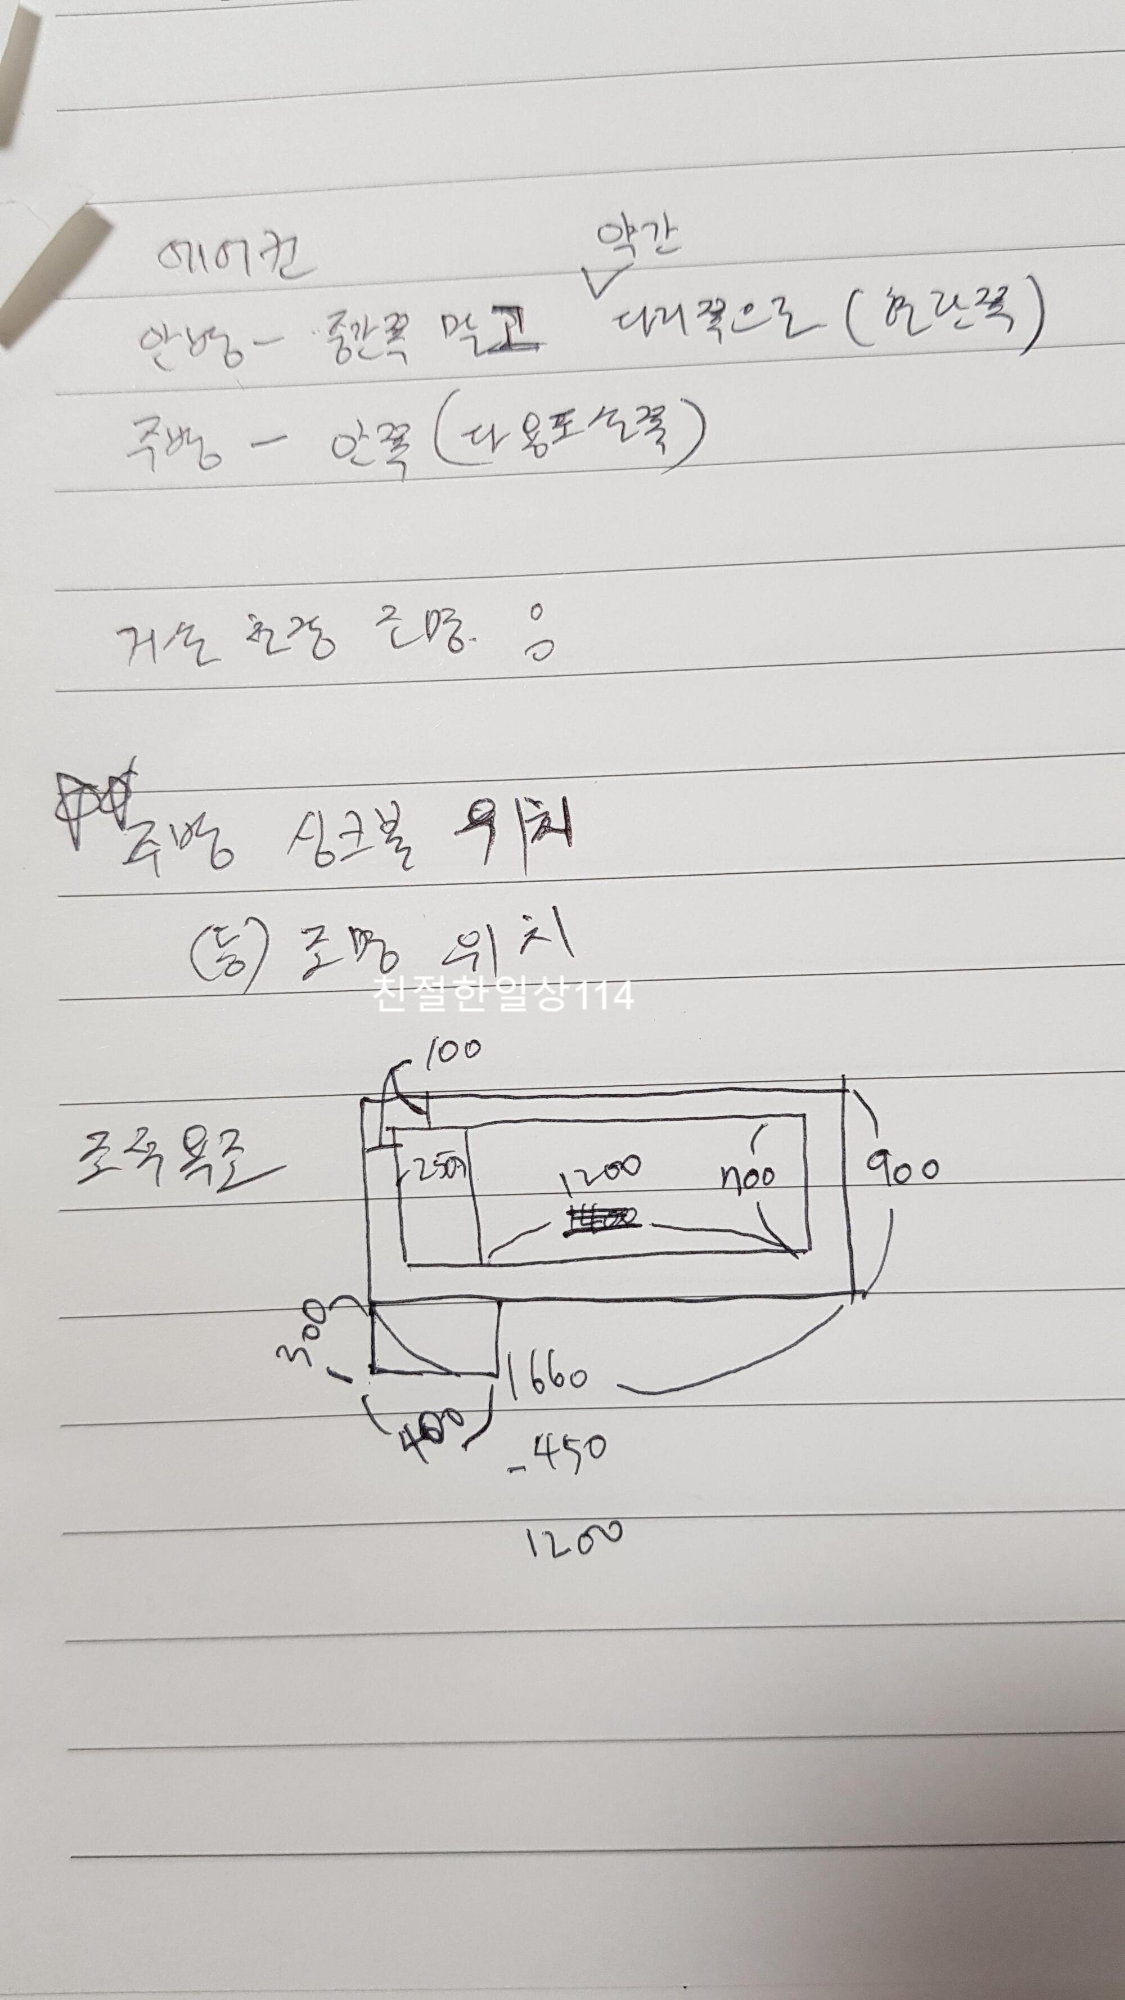 에어컨
약간
안방 - 중간쪽 말고 ✓ 다리쪽으로 (현관쪽)
주방 - 안쪽 (다용도실쪽)
거실 천장 조명.
주방 싱크볼 위치
(등) 조명 위치
친절한일상114
100
조적욕조
250
1200
700
900
300
400
1660
-450
1200